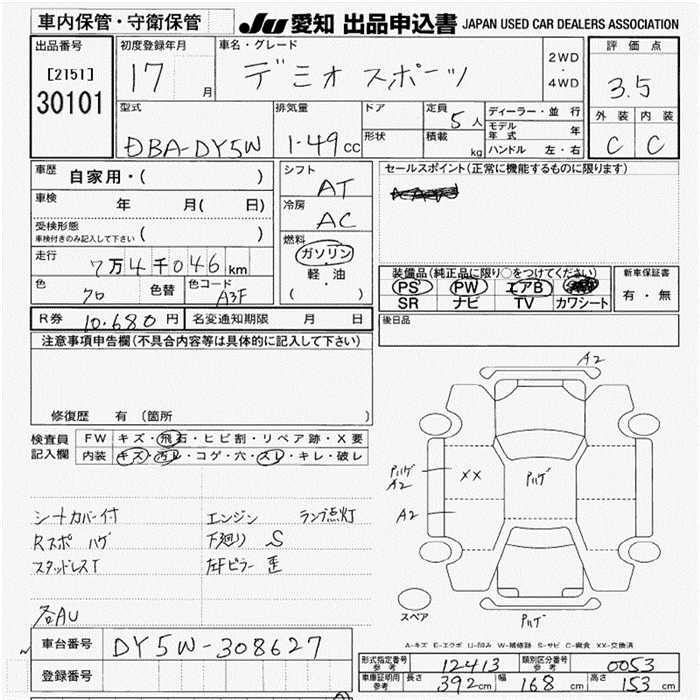 車内保管・守衛保管
JU 愛知 出品申込書 JAPAN USED CAR DEALERS ASSOCIATION
出品番号
[2151]
30101
初度登録年月
17 月
車名・グレード
デミオ スポーツ
2WD
・
4WD
評価点
3.5
外装 内装
C C
型式
DBA-DY5W
排気量
1.49 cc
ドア
形状
定員
5 人
積載
kg
ディーラー・並行
モデル年式 年
ハンドル 左・右
車歴
自家用・( )
車検 年 月( 日)
受検形態
車検付きのみ記入して下さい ( )
走行
7万4千046 km
色
クロ
色替
色コード
A3F
シフト
AT
冷房
AC
燃料
ガソリン
軽・油
( )
セールスポイント(正常に機能するものに限ります)
装備品(純正品に限り○をつけてください)
PS PW エアB
SR ナビ TV カワシート
新車保証書
有・無
R券 10.680 円 名変通知期限 月 日
後日品
注意事項申告欄(不具合内容等は具体的に記入して下さい)
修復歴 有 (箇所 )
検査員
記入欄
FW キズ・飛石・ヒビ割・リペア跡・X要
内装 キズ・汚レ・コゲ・穴・スレ・キレ・破レ
シートカバー付
Rスポ ハゲ
スタッドレスT
各AU
エンジン ランプ点灯
下廻り S
左Fピラー 歪
A2
Pハゲ
A2
XX
Pハゲ
A2
Pハゲ
スペア
A-キズ E-エクボ U-凹み W-補修跡 S-サビ C-腐食 XX-交換済
車台番号 DY5W-308627
登録番号
型式指定番号
参考
12413
類別区分番号
参考
0053
車庫証明用
参考
長さ 392cm 幅 168cm 高さ 153cm